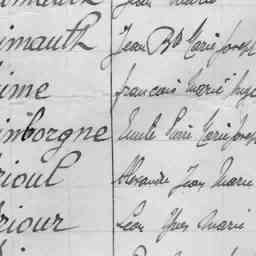 Jean Marie
imault Jean Bte Marie Joseph
ime francois Marie
inborgne Emile Pierre Marie Joseph
rioul Alexandre Jean Marie
riour Léon Yves Marie